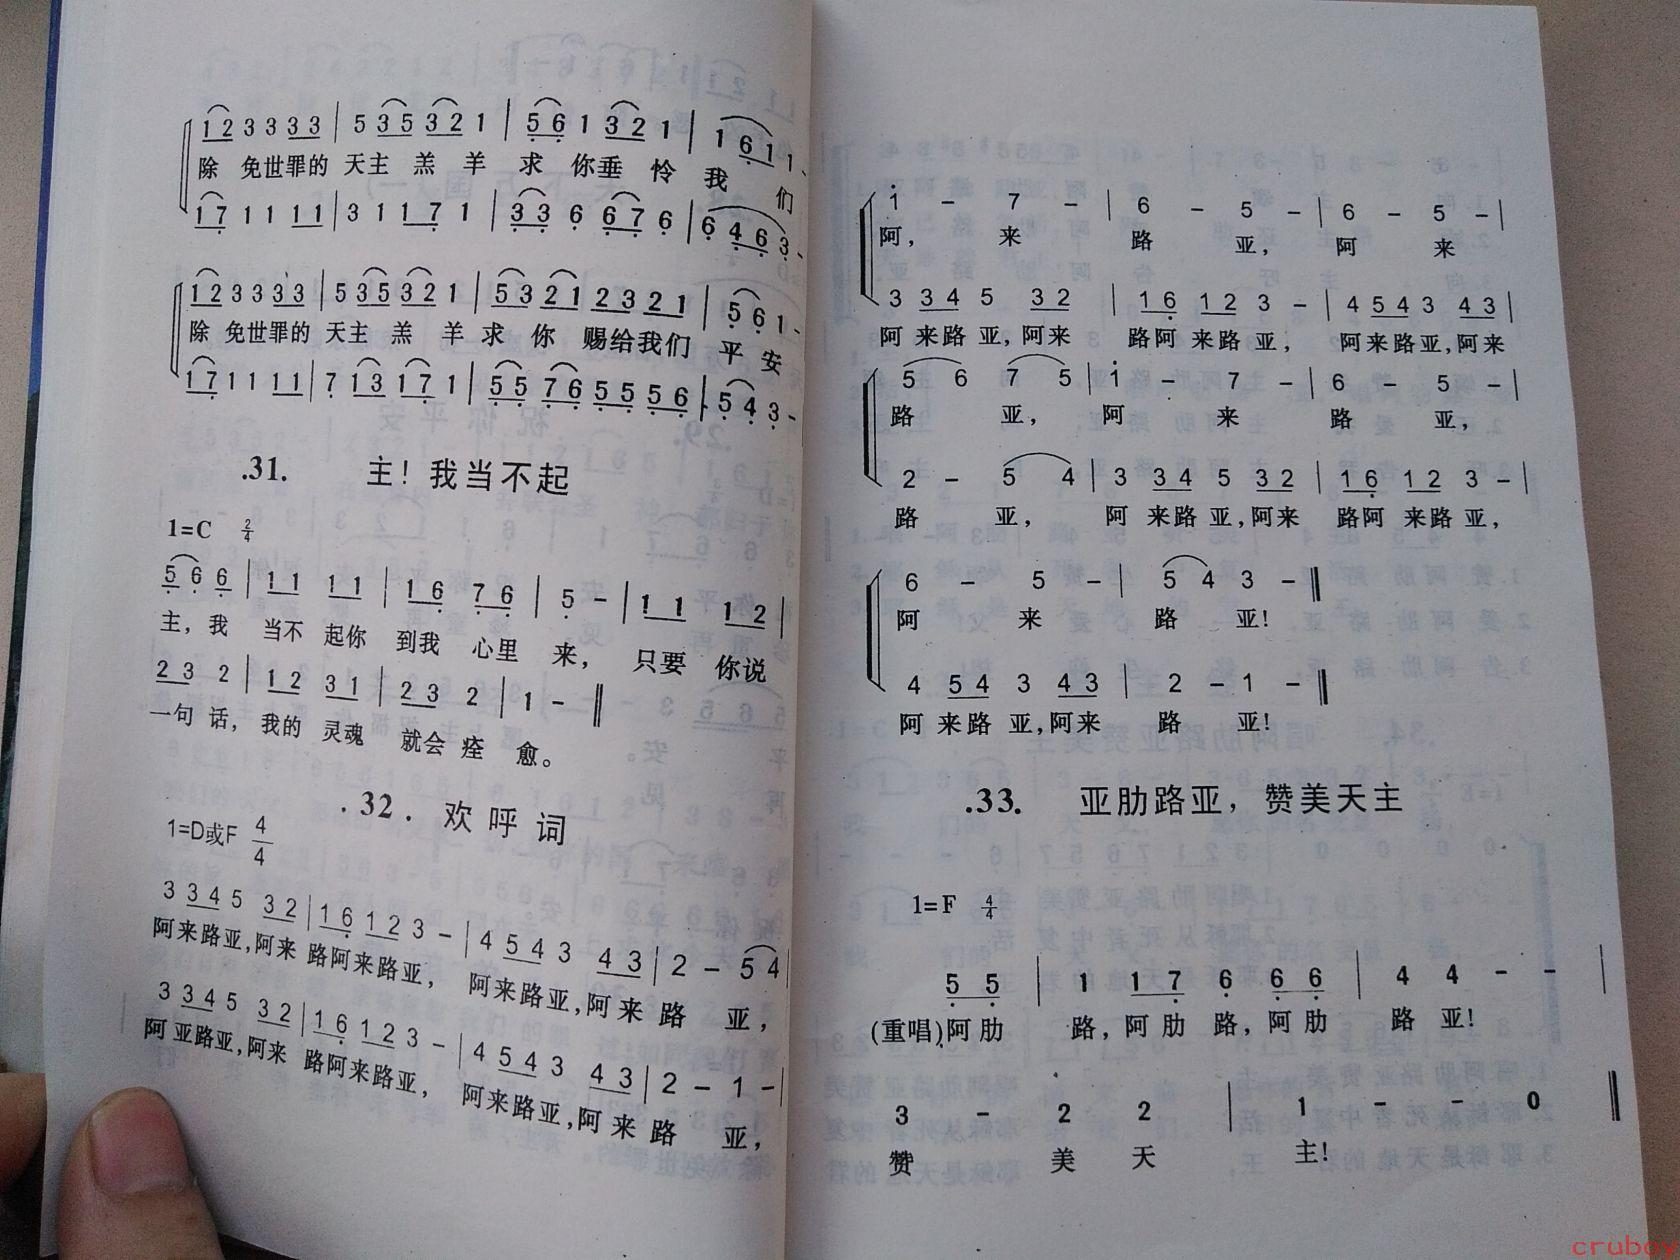 1 2 3 3 3 3 | 5 3 5 3 2 1 | 5 6 1 3 2 1 | 1 6 1 1 -
除 免世罪的 天主 羔 羊 求 你垂 怜 我 们
1 7 1 1 1 1 | 3 1 1 7 1 | 3 3 6 6 7 6 | 6 4 6 3 -
1 2 3 3 3 3 | 5 3 5 3 2 1 | 5 3 2 1 2 3 2 1 | 5 6 1 -
除 免世罪的 天主 羔 羊 求 你 赐给我们 平 安
1 7 1 1 1 1 | 7 1 3 1 7 1 | 5 5 7 6 5 5 5 6 | 5 4 3 -
.31. 主！我当不起
1=C 2/4
5 6 6 | 1 1 1 1 | 1 6 7 6 | 5 - | 1 1 1 2 |
主，我 当不 起你 到我 心里 来， 只要 你说
2 3 2 | 1 2 3 1 | 2 3 2 | 1 - ‖
一句 话，我的 灵魂 就会 痊 愈。
.32. 欢呼词
1=D或F 4/4
3 3 4 5 3 2 | 1 6 1 2 3 - | 4 5 4 3 4 3 | 2 - 5 4 |
阿来路亚,阿来 路阿来路亚， 阿来路亚,阿来 路 亚，
3 3 4 5 3 2 | 1 6 1 2 3 - | 4 5 4 3 4 3 | 2 - 1 - |
阿亚路亚,阿来 路阿来路亚， 阿来路亚,阿来 路 亚，
i - 7 - | 6 - 5 - | 6 - 5 - |
阿， 来 路 亚， 阿 来
3 3 4 5 3 2 | 1 6 1 2 3 - | 4 5 4 3 4 3 |
阿 来路 亚,阿来 路阿 来路 亚， 阿来路亚,阿来
5 6 7 5 | i - 7 - | 6 - 5 - |
路 亚， 阿 来 路 亚，
2 - 5 4 | 3 3 4 5 3 2 | 1 6 1 2 3 - |
路 亚， 阿 来路 亚,阿来 路阿 来路 亚，
6 - 5 - | 5 4 3 - ‖
阿 来 路 亚!
4 5 4 3 4 3 | 2 - 1 - ‖
阿 来路 亚,阿来 路 亚!
.33. 亚肋路亚，赞美天主
1=F 4/4
5 5 | 1 1 7 6 6 6 | 4 4 - - |
(重唱)阿肋 路，阿 肋 路，阿 肋 路 亚!
3 - 2 2 | 1 - - 0 ‖
赞 美 天 主!
cruboy